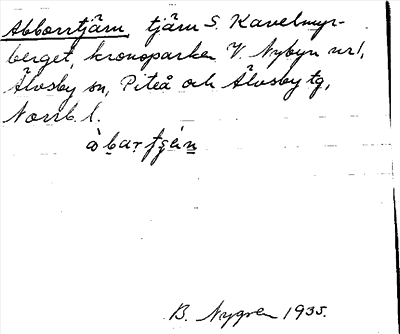 Abborrtjärn, tjärn S. Kavelmyr-
berget, kronoparken V. Nybyn nr 1,
Älvsby sn, Piteå och Älvsby tg,
Norrb. l.
B. Nygren 1935.